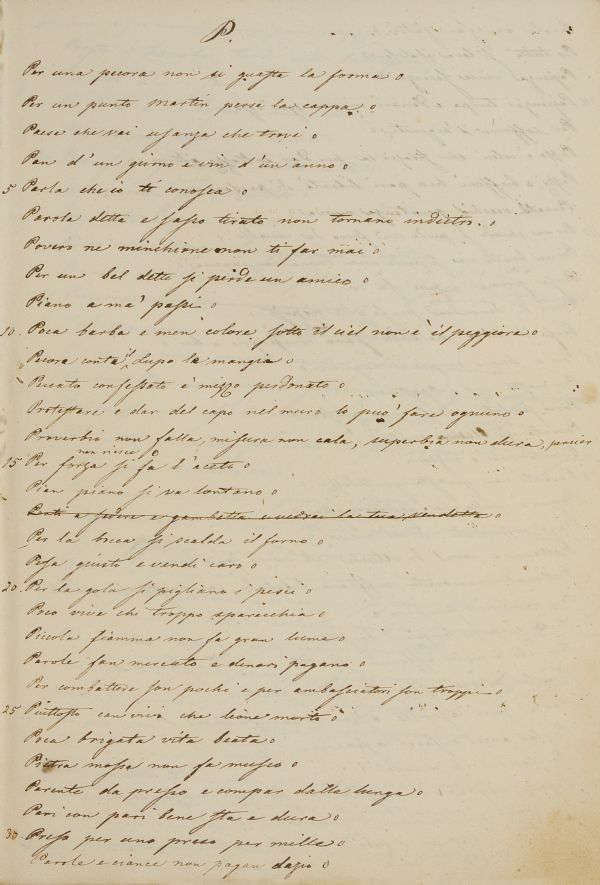 P.
Per una pecora non si guasta la forma
Per un punto Martin perse la cappa
Paese che vai usanza che trovi
Pan d'un giorno e vin d'un anno
5 Parla che io ti conosca
Parola detta e sasso tirato non tornano indietro.
Povero ne minchione non ti far mai
Per un bel detto si perde un amico
Piano a ma' passi
10. Poca barba e men colore sotto il ciel non è il peggiore
Pecora contata il lupo la mangia
Peccato confessato è mezzo perdonato
Protestare e dar del capo nel muro lo può fare ognuno
Proverbio non falla, misura non cala, superbia non dura,
non riesce
15 Per forza si fa l'aceto
Pian piano si va lontano
a sedere e gambetta e vedrai la tua vendetta
Per la bocca si scalda il forno
Pesa giusto e vendi caro
20. Per la gola si pigliano i pesci
Poco vive chi troppo sparecchia
Piccola fiamma non fa gran lume
Parole fan mercato e denari pagano
Per combattere son pochi e per ambasciatori son troppi
25 Piuttosto can vivo che leone morto
Poca brigata vita beata
Pietra mossa non fa musco
Parente da presso e compar dalla lunga
Pari con pari bene sta e dura
30. Preso per uno preso per mille
Parole e ciance non pagan dazio